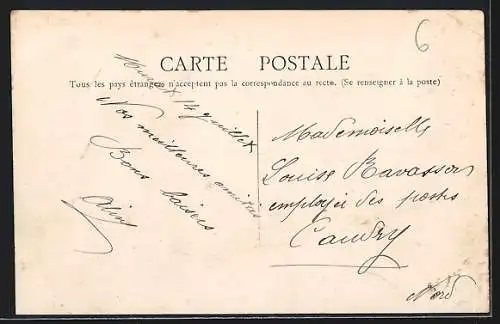 6
CARTE POSTALE
Tous les pays étrangers n'acceptent pas la correspondance au recto. (Se renseigner à la poste)
14 Juillet
Nos meilleures amitiés
Bons baisers
Mademoiselle
Louise Ravasson
employée des postes
Caudry
Nord